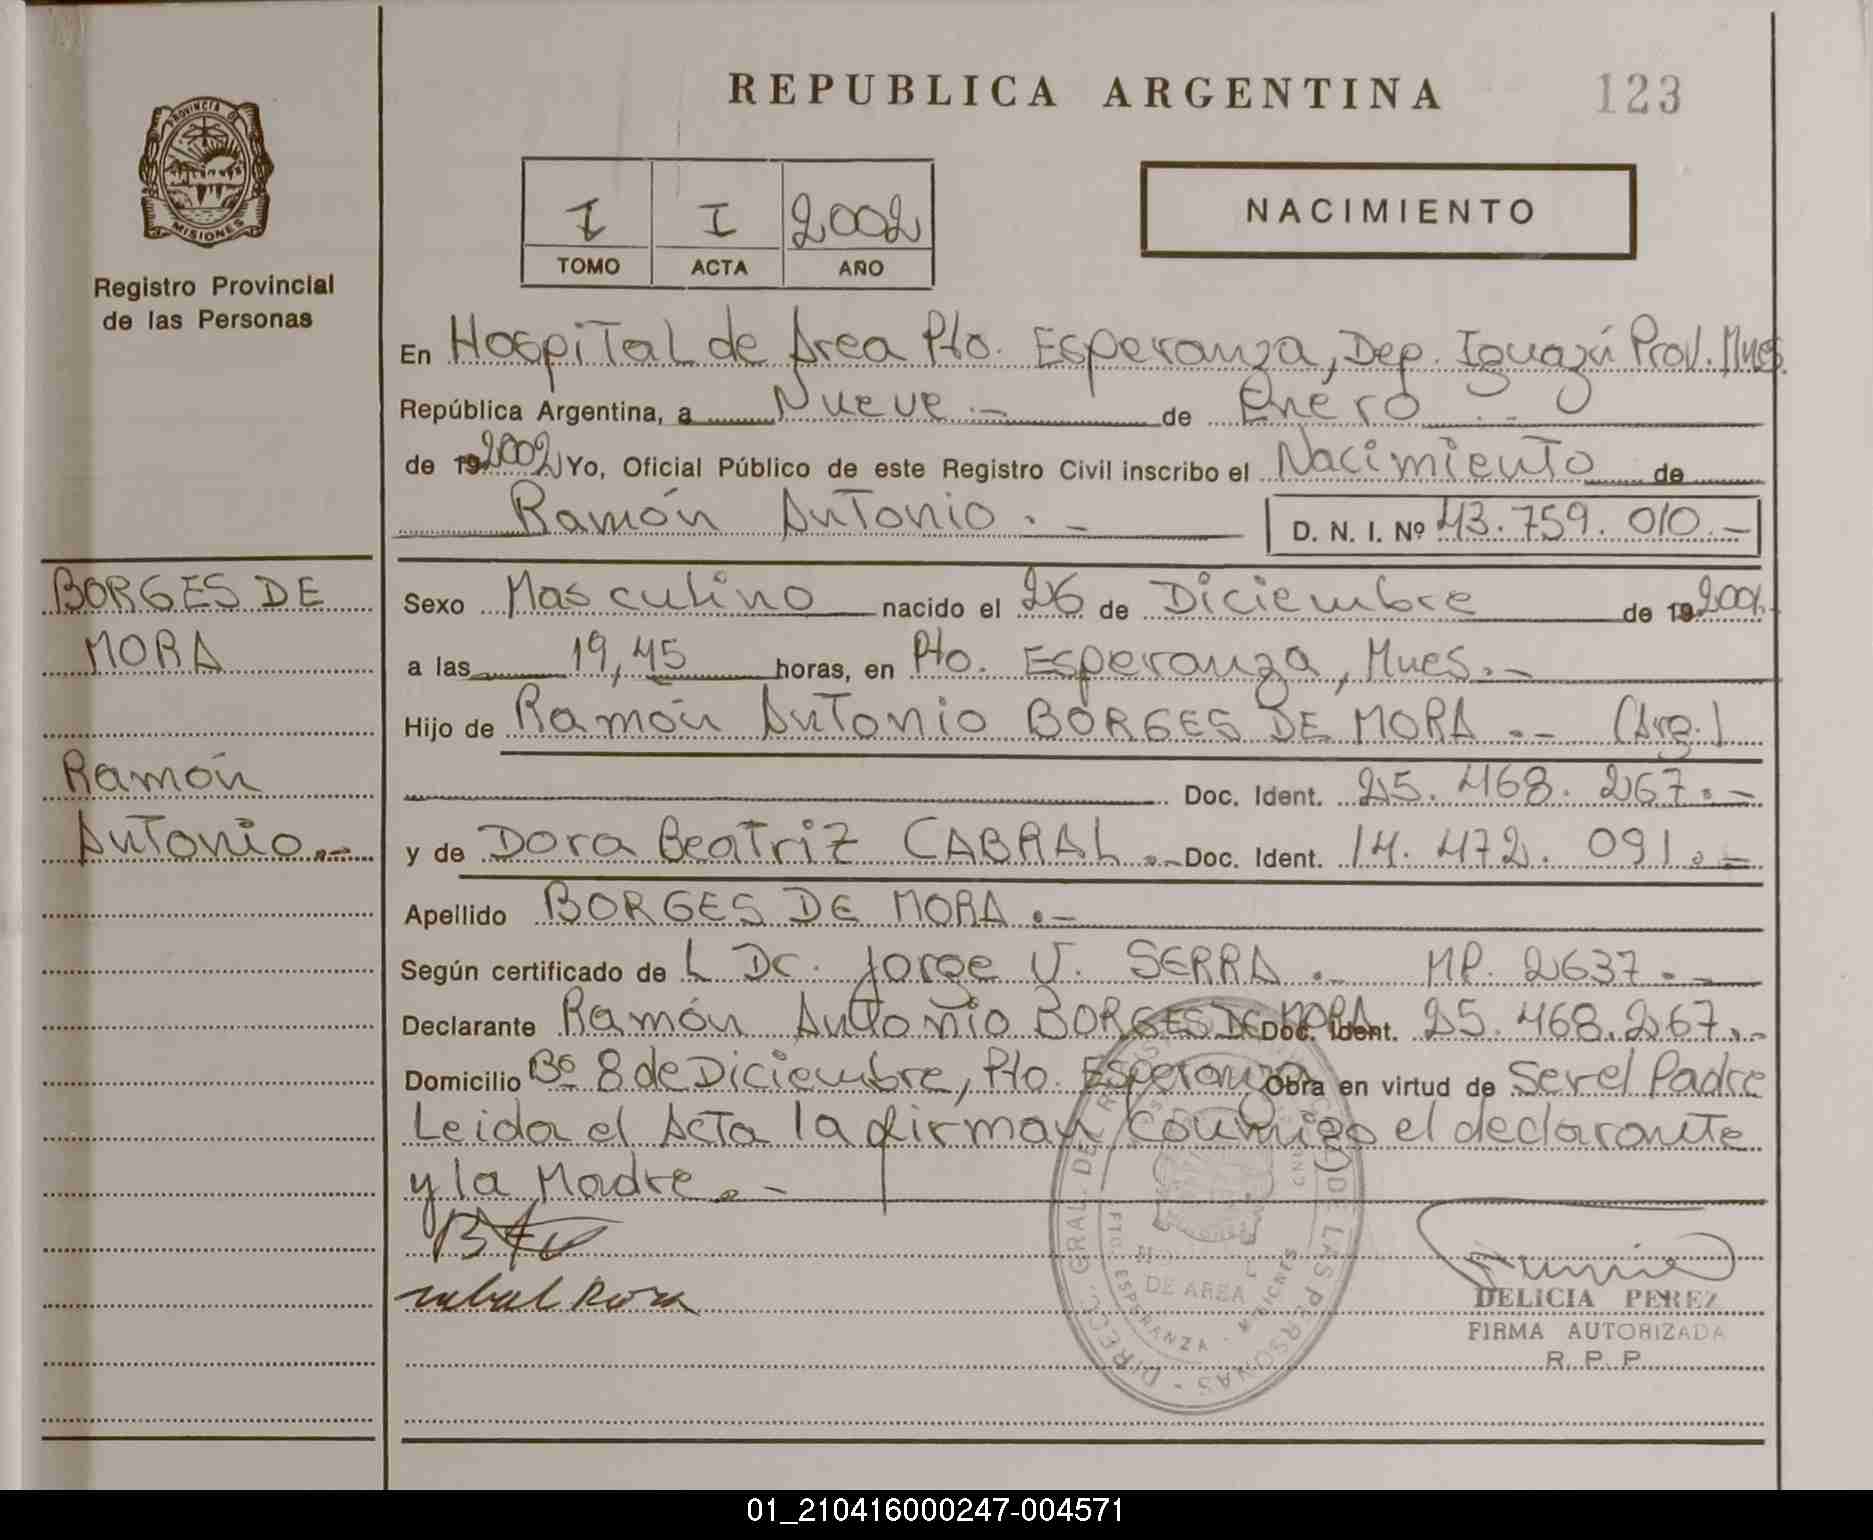 REPUBLICA ARGENTINA
123
PROVINCIA D
MISIONES
Registro Provincial
de las Personas
I I 2002
TOMO ACTA AÑO
NACIMIENTO
En Hospital de Area Pto. Esperanza, Dep. Iguazú Prov. Mnes.
República Argentina, a Nueve.- de Enero
de 192002 Yo, Oficial Público de este Registro Civil inscribo el Nacimiento de
Ramón Antonio.- D. N. I. Nº 43.759.010.-
BORGES DE
MORA
Ramón
Antonio.-
Sexo Masculino nacido el 26 de Diciembre de 192001.
a las 19,45 horas, en Pto. Esperanza, Mnes.-
Hijo de Ramón Antonio BORGES DE MORA.- (Arg.)
Doc. Ident. 25.468.267.-
y de Dora Beatriz CABRAL.- Doc. Ident. 14.472.091.-
Apellido BORGES DE MORA.-
Según certificado de L Dr. Jorge V. SERRA.- MP. 2637.-
Declarante Ramón Antonio BORGES DE MORA Doc. Ident. 25.468.267.-
Domicilio Bº 8 de Diciembre, Pto. Esperanza Obra en virtud de Ser el Padre
Leida el Acta la firman conmigo el declarante
y la Madre.-
DIRECC. GRAL. DE LAS PERSONAS
DE AREA
ESPERANZA - MISIONES
DELICIA PEREZ
FIRMA AUTORIZADA
R. P. P.
01_210416000247-004571